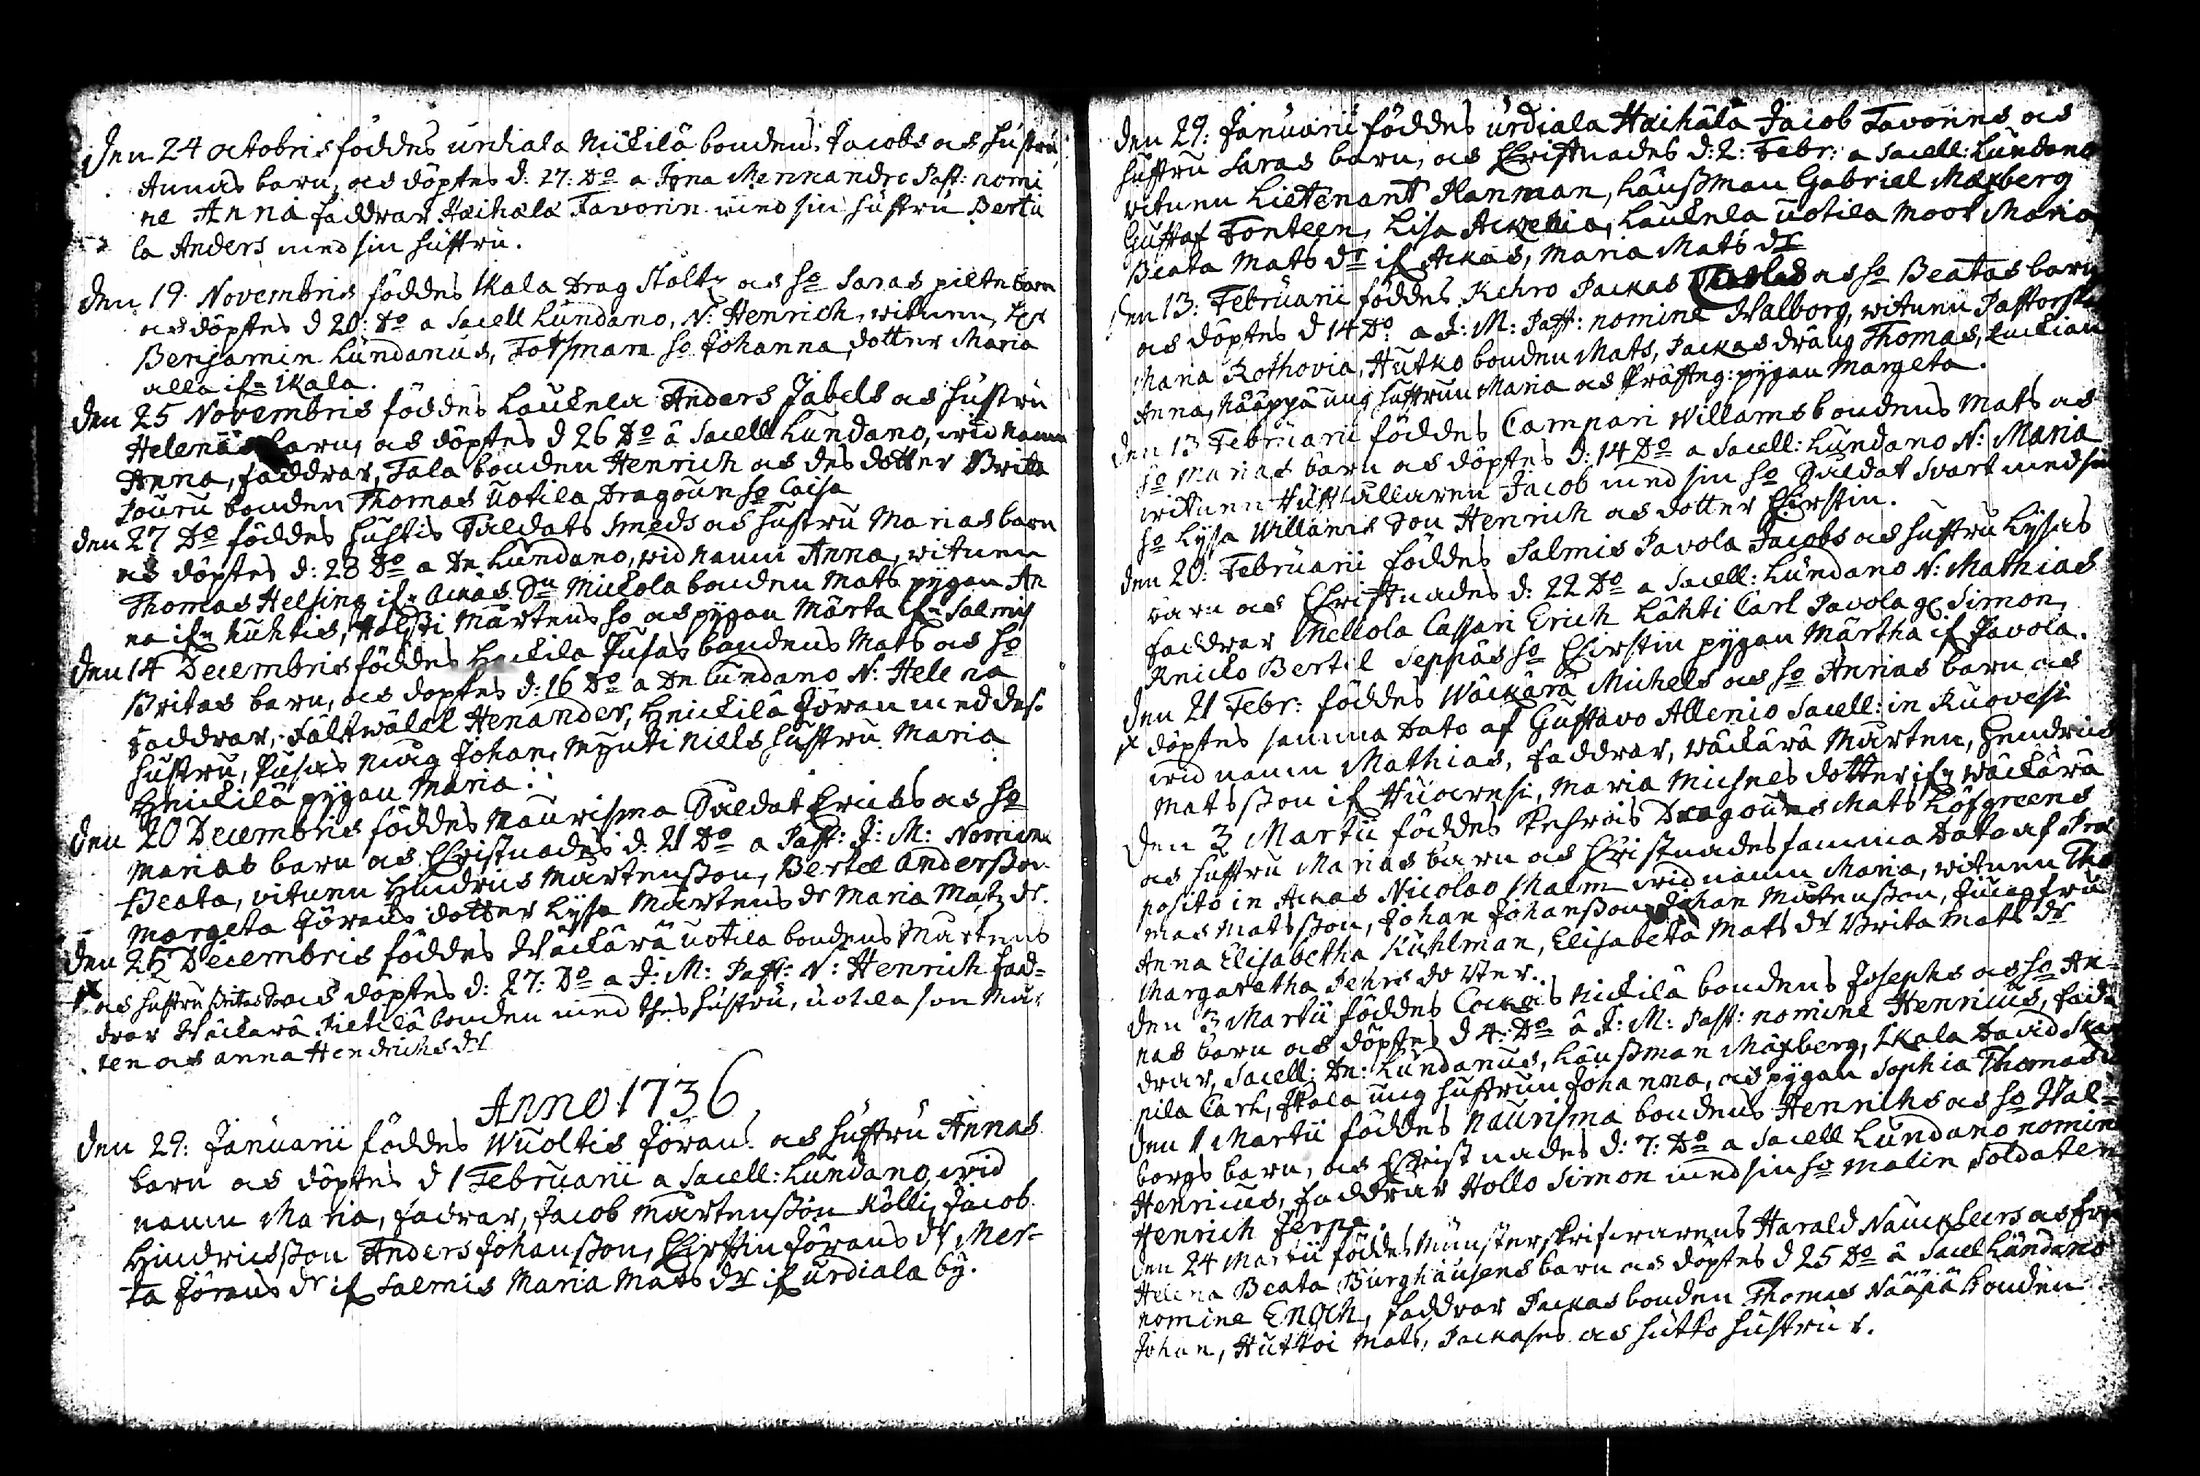 Den 24 octobris föddes urdiala Nickilä bondens Jacobs as hustru
Annas barn, as döptes d: 27: Do a Jona Mennandro Past: nomi
ne Anna faddrar Haihala Favorin med sin hustru Bertu
la Anders med sin hustru.
den 19 Novembris föddes Ikala Drag Stoltz as ho Saras piltebarn
as döptes d 20: Do a Sacell Lundano, N: Henrich, witnen,
Benjamin Lundanus, Forsman ho Johanna, dotter Maria
alla ifn Ikala.
den 25 Novembris föddes Laukela Anders Jabels as hustru
Helenas barn, as döptes d 26 Do â Sacell Lundano, wid namn
Anna, faddrar, Tala bonden Henrich as des dotter Brita
Jouru bonden Thomas uotila Dragoun ho Caisa
den 27 Do föddes huhtis Saldats Smeds as hustru Marias barn
as döptes d: 28 Do a Dn Lundano, wid namn Anna, witnen
Thomas Helsing ifn Ackas Dn Mickola bonden Mats pygan An
na ifn huhtis, Mårtens ho as pygan Märta ifn Salmis
den 14 Decembris föddes Hnickila Pusas bondens Mats as ho
Britas barn, as döptes d: 16 Do a Dn Lundano N: Helena
faddrar, Fältwäbel Henander, Hnickilä Jöran med des
hustru, Pusas mag Johan, Mynti Niels hustru Maria
Hnickilä pygan Maria.
den 20 Decembris föddes Naurisma Saldat Erichs as ho
Marias barn as Christnades d: 21 Do a Past: J: M: Nomine
Beata, witnen Hindrics Mårtensson, Bertel Andersson
Margeta Jörans dotter Lysa Mårtens dr Maria Matz dr.
den 25 Decembris föddes Wäckärä uotila bondens Mårtens
as hustru Britas as döptes d: 27: Do a J: M: Past: N: Henrich fad-
drar Wäckärä Pietilä bonden med thes hustru, uotila son Mår
ten as anna Hendrichs dr
Anno 1736
den 29: Januarii föddes Wuoltis Jörans as hustru Annas
barn as döptes d 1 Februarii a Sacell: Lundano, wid
namn Maria, fadrar, Jacob Mårtensson Kölli, Jacob
Hindricsson Anders Johansson, Chirstin Jörans dr Mer-
ta Jörans dr if Salmis Maria Mats dr if urdiala by.
den 29: Januarii föddes urdiala Haihala Jacob Favorins as
hustru Saras barn, as Christnades d: 2: Febr: a Sacell: Lundano
witnen Lieutenant Hanman, Länssman Gabriel Maxberg
Gustaf Fonteen, Lisa Ackrelia, Laukela uotila Moor Maria
Beata Mats dr if Ackas, Maria Mats dr
den 13: Februarii föddes Kehro Packas as ho Beatas barn
as döptes d 14 Do a J: M: Past: nomine Walborg, witnen
Maria Rothovia, Hutko bonden Mats, Packas dräng Thomas,
Anna, Nääppä ung hustrun Maria as pygan Margeta.
den 13 Februarii föddes Campari Willams bondens Mats as
ho Marias barn as döptes d: 14 Do a Sacell: Lundano N: Maria
witnen Jacob med sin ho Saldat Svart med sin
ho Lysa Willams Son Henrich as dotter Chirstin.
den 20: Februarii föddes Salmis Pavola Jacobs as hustru Lysas
barn as Christnades d: 22 Do a Sacell: Lundano N: Mathias
faddrar Mellola Cassari Erich Lahti Carl Pavola Simon,
Knicko Bertil Seppäs ho Chirstin pygan Märtha if Pavola.
den 21 Febr: föddes Wäckärä Michels as ho Annas barn as
döptes samma Dato af Gustavo Allenio Sacell: in Ruovesi
wid namn Mathias, faddrar, wäckärä Mårten, Hendric
Matsson if, Maria Michels dotter ifn wäckärä
den 3 Martii föddes Kehrois Dragouns Mats Löfgreens
as hustru Marias barn as Christnades samma Dato af
posito in Ackas Nicolao Malm wid namn Maria, witnen Tho
mas Matsson, Johan Johansson, Johan Mårtensson, Jungfru
Anna Elisabetha Kuhlman, Elisabeta Mats dr Brita Mats dr
Margaretha Pehrs dotter.
den 3 Martii föddes Nickilä bondens Josephs as ho An-
nas barn as döptes d 4: Do â J: M: Past: nomine Henricus, fad
drar, Sacell: Dn: Lundanus, Länssman Maxberg, Ikala David
nila Carl, Ikala ung hustrun Johanna, as pygan Sophia Thomas
den 1 Martii föddes Naurisma bondens Henrichs as ho Wal-
borgs barn, as Christnades d: 7: Do a Sacell Lundano nomine
Henricus, faddrar Hollo Simon med sin ho Malin Soldaten
Henrich Jerpe.
den 24 Martii föddes Munsterskrifwarens Harald Nauclers as
Helena Beata Burghausens barn as döptes d 25 Do â Sacell Lundano
nomine Enoch, faddrar Packas bonden Thomas Nääpä bonden
Johan, Hutkoi Mats, as hutko hustrur.